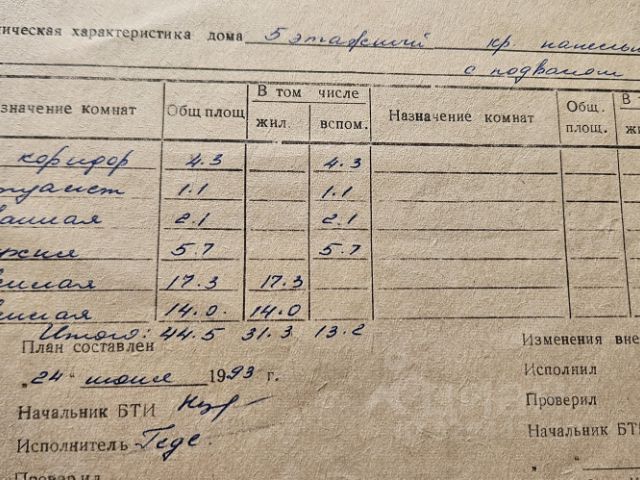 ическая характеристика дома 5 этажный кр. панельн
с подвалом
значение комнат Общ площ В том числе Назначение комнат Общ. площ. В т
жил. вспом. жи
коридор 4.3 4.3
туалет 1.1 1.1
ванная 2.1 2.1
ухня 5.7 5.7
жилая 17.3 17.3
жилая 14.0 14.0
Итого: 44.5 31.3 13.2
План составлен
„24" июня 1993 г.
Начальник БТИ
Исполнитель
Проверил
Изменения вне
Исполнил
Проверил
Начальник БТИ
„ "